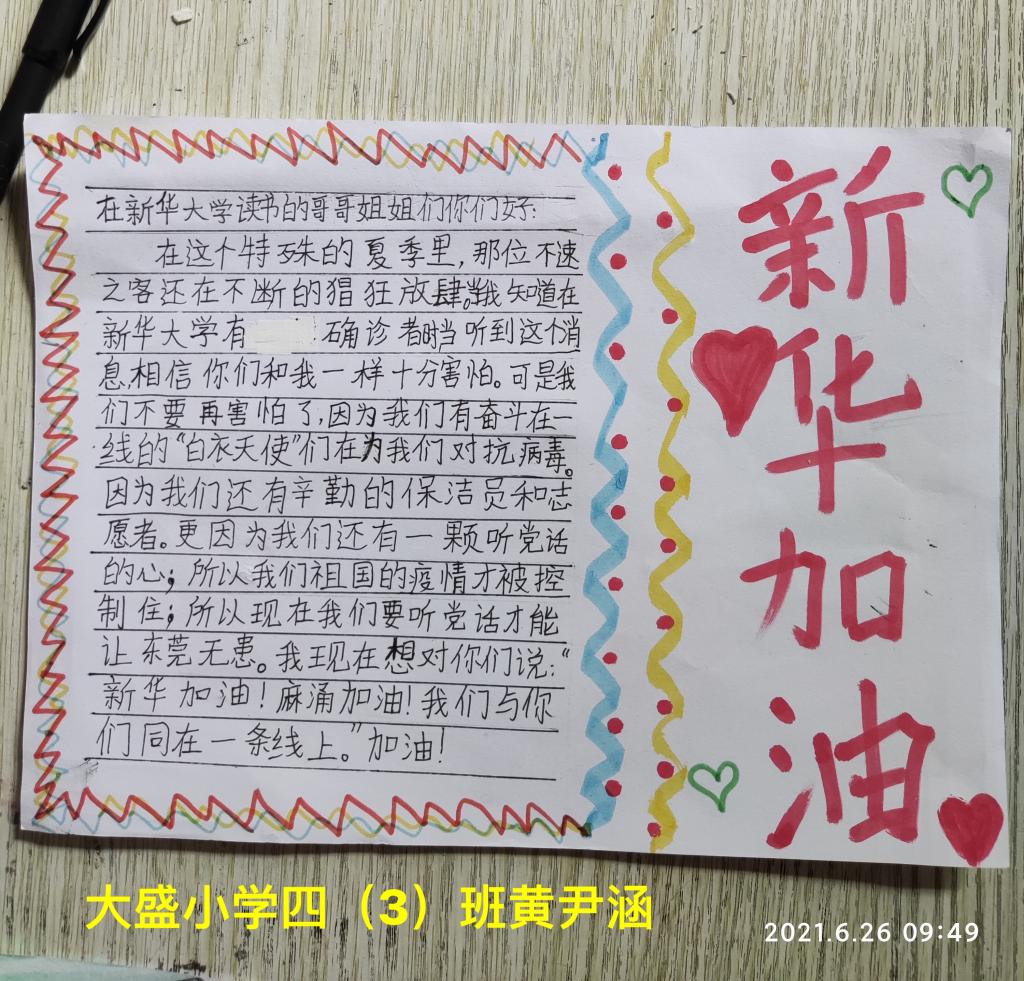 在新华大学读书的哥哥姐姐们你们好:
在这个特殊的夏季里,那位不速
之客还在不断的猖狂放肆。当我知道在
新华大学有 确诊者时当听到这个消
息,相信你们和我一样十分害怕。可是我
们不要再害怕了,因为我们有奋斗在一
线的“白衣天使”们在为我们对抗病毒。
因为我们还有辛勤的保洁员和志
愿者。更因为我们还有一颗听党话
的心;所以我们祖国的疫情才被控
制住;所以现在我们要听党话才能
让东莞无患。我现在想对你们说:“
新华加油!麻涌加油!我们与你
们同在一条线上。”加油!
新华加油
大盛小学四(3)班黄尹涵
2021.6.26 09:49